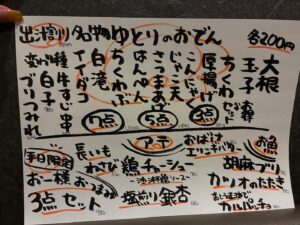 各200円
ゆとりのおでん
出汁割り
名物
大根
玉子
ちくわ
厚揚げ
こんにゃく
じゃこ天
さつまあげ
はんぺん
ちくわぶ
白滝
イイダコ
牛すじ串
白子
ブリつみれ
3点
5点
7点
アテ
お魚
胡麻ブリ
カツオのたたき
カルパッチョ
おばけ
エシャレット
鶏チャーシュー
塩煎り銀杏
長いも
わさび
平日限定
お一人様おつまみ
3点セット